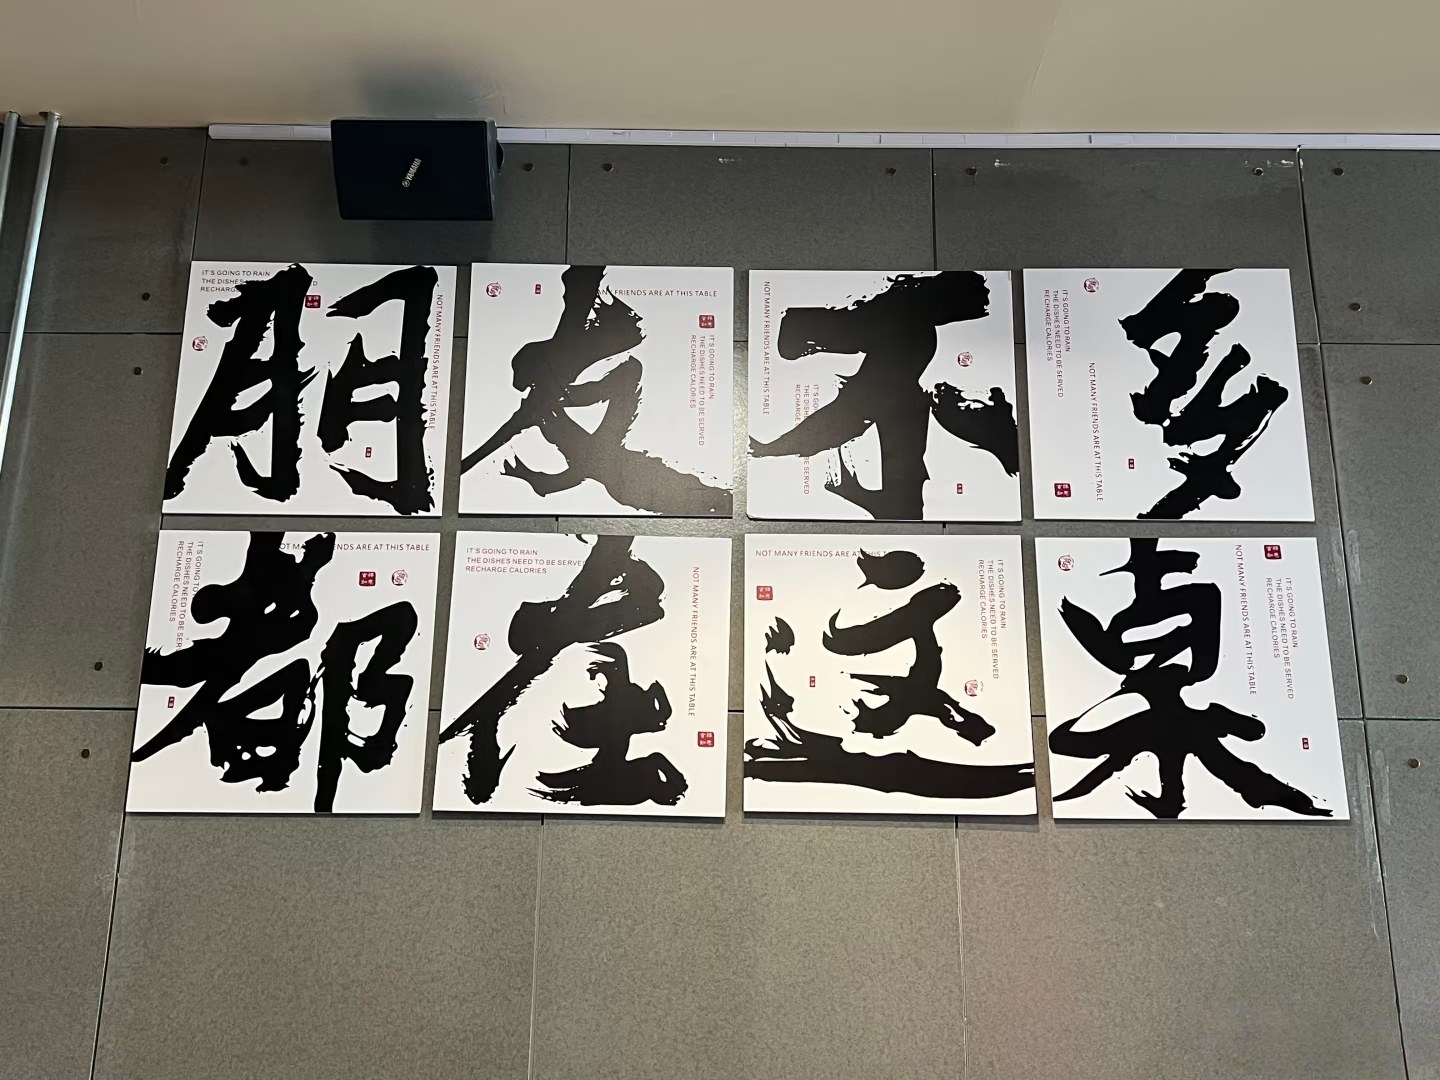 YAMAHA
朋友不多
都在这桌
IT'S GOING TO RAIN
THE DISHES
RECHARGE
NOT MANY FRIENDS ARE AT THIS TABLE
FRIENDS ARE AT THIS TABLE
IT'S GOING TO RAIN
THE DISHES NEED TO BE SERVED
RECHARGE CALORIES
NOT MANY FRIENDS ARE AT THIS TABLE
IT'S GOING TO RAIN
THE DISHES NEED TO BE SERVED
RECHARGE CALORIES
NOT MANY FRIENDS ARE AT THIS TABLE
IT'S GOING TO
THE DISHES NEED TO BE
RECHARGE CALORIES
ARE AT THIS TABLE
IT'S GOING TO RAIN
THE DISHES NEED TO BE SERVED
RECHARGE CALORIES
NOT MANY FRIENDS ARE AT THIS TABLE
NOT MANY FRIENDS ARE AT
IT'S GOING TO RAIN
THE DISHES NEED TO BE SERVED
RECHARGE CALORIES
NOT MANY FRIENDS ARE AT THIS TABLE
IT'S GOING TO RAIN
THE DISHES NEED TO BE SERVED
RECHARGE CALORIES